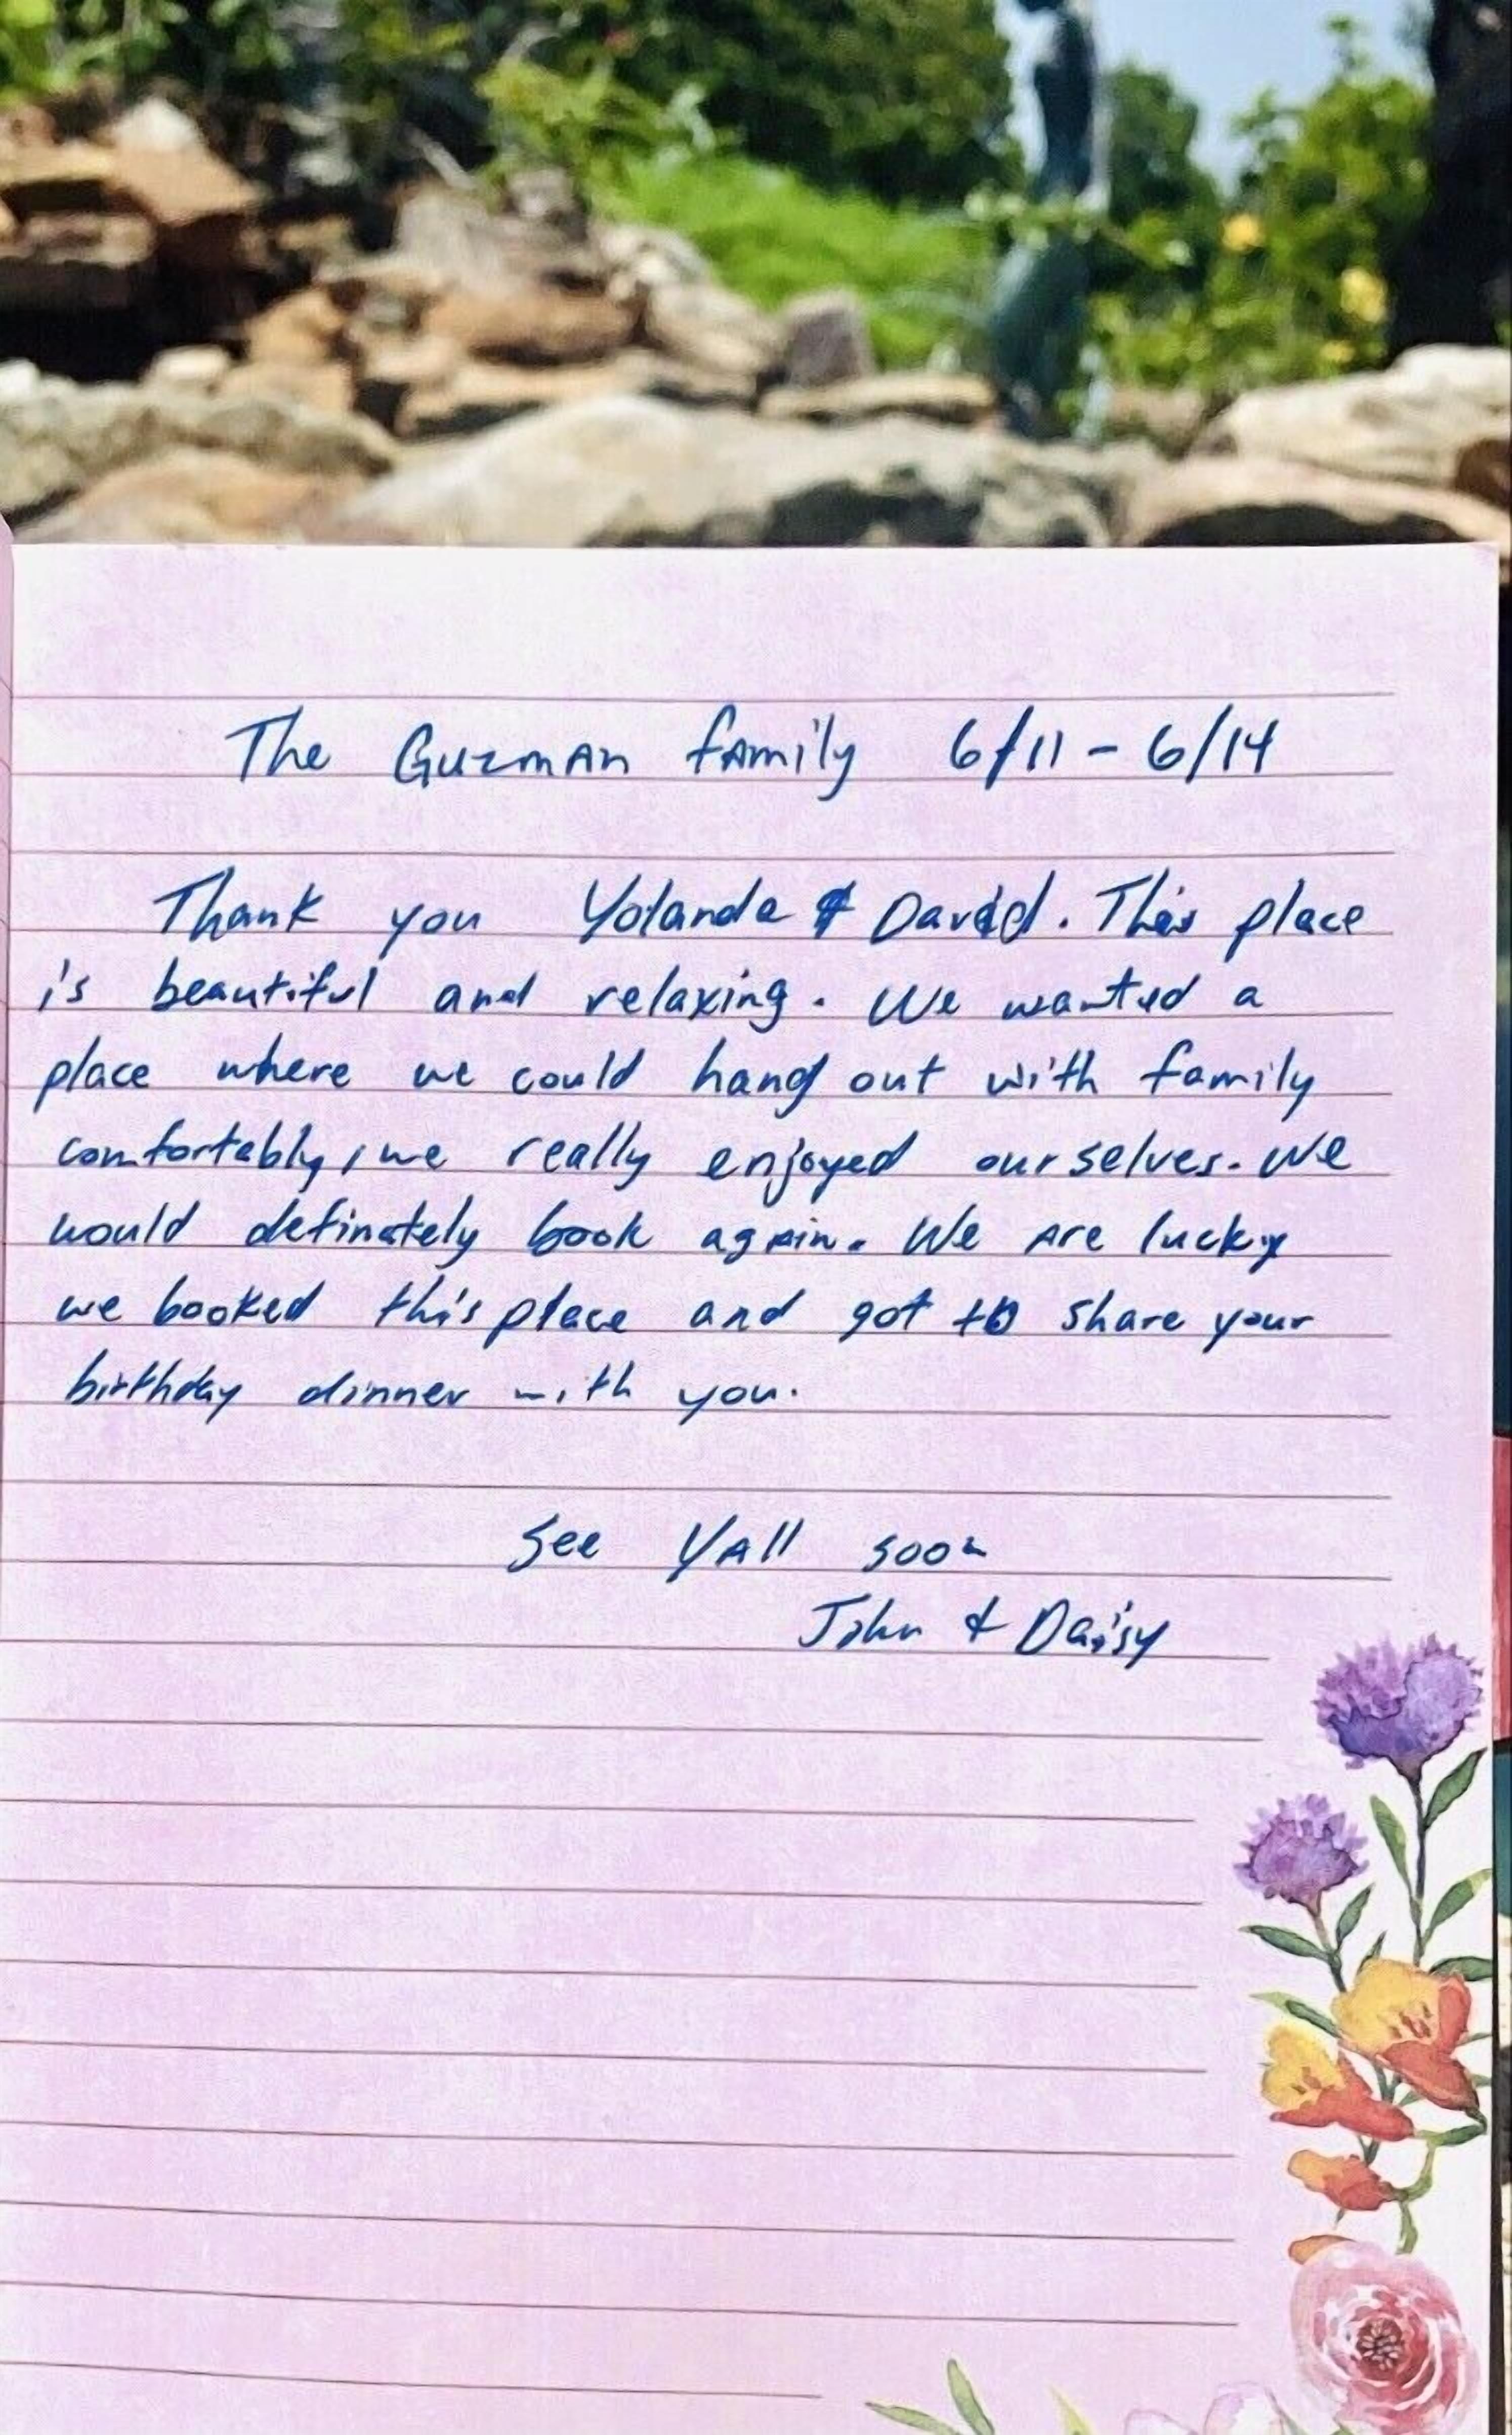 The Guzman family 6/11 - 6/14
Thank you Yolanda & David. This place
is beautiful and relaxing. We wanted a
place where we could hang out with family
comfortably, we really enjoyed ourselves. We
would definately book again. We are lucky
we booked this place and got to share your
birthday dinner with you.
See Yall soon
John & Daisy